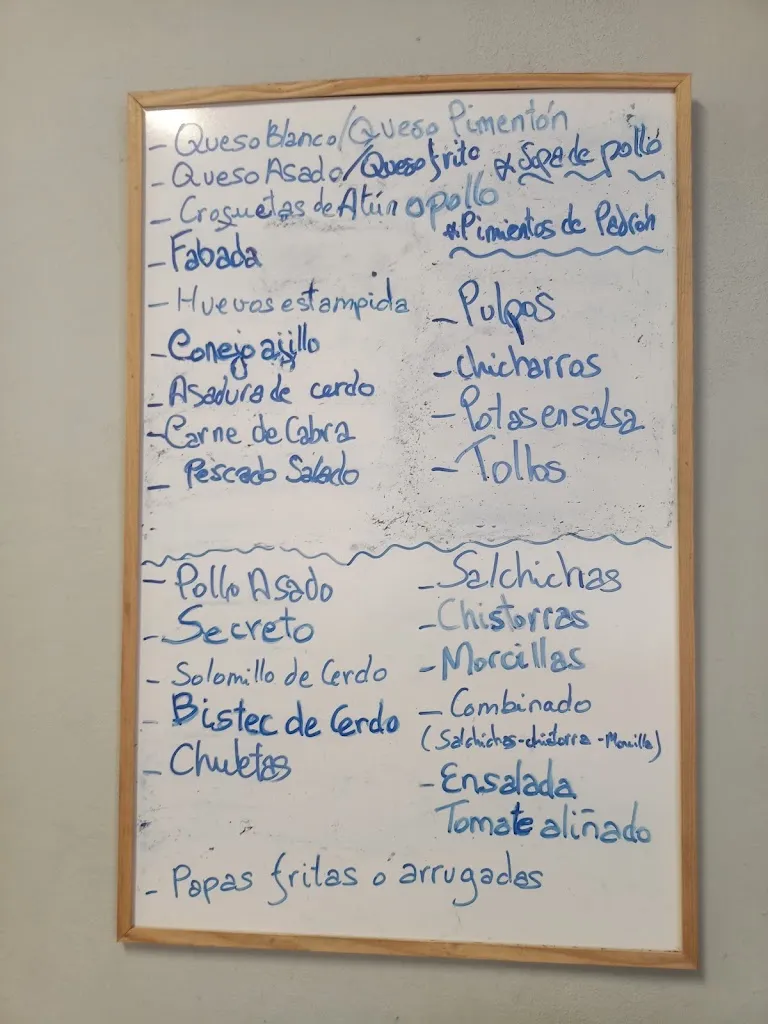 - Queso Blanco/Queso Pimentón
- Queso Asado/Queso frito
* Sopa de pollo
- Croquetas de Atún o pollo
* Pimientos de Padron
- Fabada
- Huevos estampida
- Conejo ajillo
- Asadura de cerdo
- Carne de Cabra
- Pescado Salado
- Pulpos
- chicharros
- Potas en salsa
- Tollos
- Pollo Asado
- Secreto
- Solomillo de Cerdo
- Bistec de Cerdo
- Chuletas
- Salchichas
- Chistorras
- Morcillas
- Combinado
(Salchichas-chistorra-Morcilla)
- Ensalada
Tomate aliñado
- Papas fritas o arrugadas